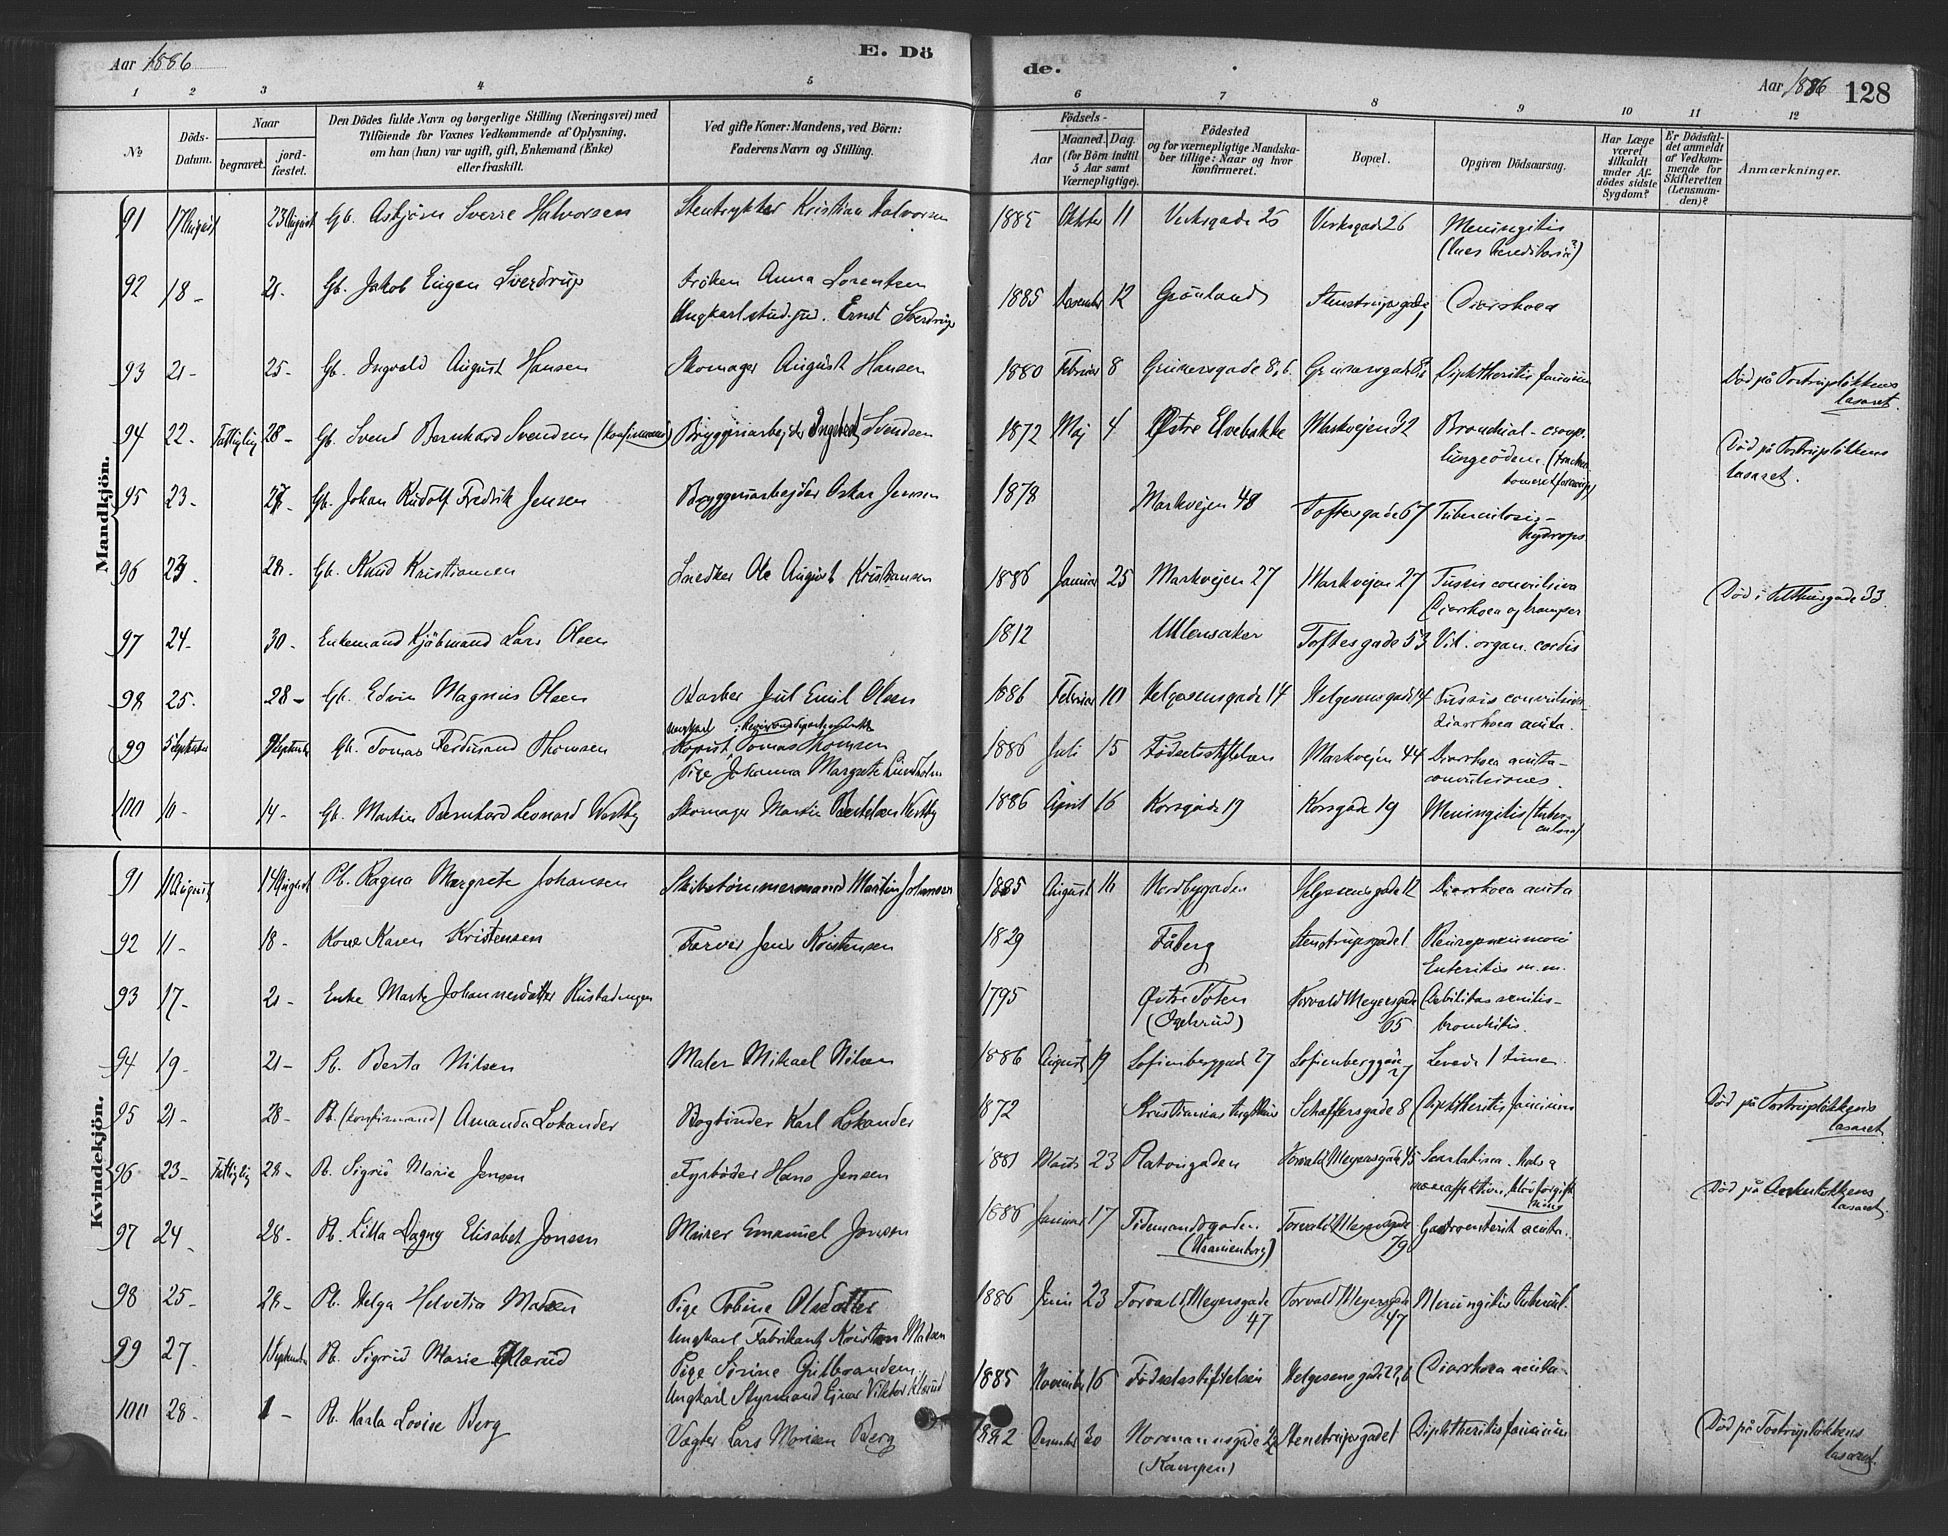 Aar 1886
E. Dö
de.
Aar 1886 128
1 2 3 4 5 6 7 8 9 10 11 12
№
Döds-
Datum.
Naar
begravet.
jord-
fæstet.
Den Dödes fulde Navn og borgerlige Stilling (Næringsvei) med
Tilföiende for Voxnes Vedkommende af Oplysning,
om han (hun) var ugift, gift, Enkemand (Enke)
eller fraskilt.
Ved gifte Koner: Mandens, ved Börn:
Faderens Navn og Stilling.
Födsels-
Aar
Maaned. Dag.
(for Börn indtil
5 Aar samt
Værnepligtige).
Födested
og for værnepligtige Mandska-
ber tillige: Naar og hvor
konfirmeret.
Bopæl.
Opgiven Dödsaarsag.
Har Læge
været
tilkaldt
under Af-
dödes sidste
Sygdom?
Er Dödsfal-
det anmeldt
af Vedkom-
mende for
Skifteretten
(Lensman-
den)?
Anmærkninger.
Mandkjön.
91 17 August 23 August Gb. Asbjörn Sverre Halvorsen Stentrykker Kristian Halvorsen 1885 Oktober 11 Verksgade 26 Verksgade 26 Meningitis
(lues hereditaria?)
92 18 - 21- Gb. Jakob Eugen Sverdrup Fröken Anna Lorentzen 1885 December 12 Grönland Stenstrupsgade Diarrhoea
Ungkarl stud. jur. Ernst Sverdrup
93 21 - 25- Gb. Ingvald August Hansen Skomager August Hansen 1880 Februar 8 Grünersgade 8,6. Grünersgade 8,6 Diphtheritis faucium Död på Tostrupløkkens
lasaret.
94 22- Fattiglig 28- Gb. Svend Bernhard Svendsen (konfirmand) Bryggeriarbejder Svendsen 1872 Maj 4 Østre Elvebakke Markvejen 32 Bronchial-croup.
lungeödem Död på Tostrupløkkens
lasaret.
95 23- 27- Gb. Johan Rudolf Fredrik Jensen Bryggeriarbejder Oskar Jensen 1878 Markvejen 48 Toftesgade 67 Tuberculosis-
hydrops
96 23. 28- Gb. Knud Kristiansen Snedker Ole August Kristiansen 1886 Januar 25 Markvejen 27 Markvejen 27 Tussis convulsiva
Diarrhoea og kramper Död i Telthusgade 33.
97 24- 30- Enkemand Kjöbmand Lars Olsen 1812 Ullensaker Toftesgade 53 Vit. organ. cordis
98 25. 28- Gb. Edvin Magnus Olsen Barber Jul Emil Olsen 1886 Februar 10 Helgesensgade 14 Helgesensgade 14 Tussis convulsiva
Diarrhoea acuta.
99 5 September 9 September Gb. Tomas Ferdinand Thomsen Ungkarl
Kopist Tomas Thomsen 1886 Juli 15 Födselsstiftelsen Markvejen 44 Diarrhoea acuta-
Pige Johanna Margrete Lundholm convulsiones.
100 10- 14- Gb. Martin Bernhard Leonard Westby Skomager Martin Berntsen Westby 1886 April 16 Korsgade 19 Korsgade 19 Meningitis (tuber-
culosa)
Kvindekjön.
91 11 August 14 August Pb. Ragna Margrete Johansen Skibstömmermand Martin Johansen 1885 August 16 Nordbygaden Helgesensgade 12 Diarrhoea acuta
92 11- 18- Kone Karen Kristensen Farver Jens Kristensen 1829 Fåberg Stenstrupsgade 1 Pleuropneumoni
Enteritis m.m.
93 17- 21- Enke Marte Johannesdatter Rustadengen 1795 Østre Toten Torvald Meyersgade Debilitas senilis-
65 bronchitis.
94 19- 21- Pb. Berta Nilsen Maler Mikael Nilsen 1886 August 19 Sofienberggade 27 Sofienberggade 27 Levede 1 time
95 21- 28- Pb. (konfirmand) Amanda Lokander Bogbinder Karl Lokander 1872 Schaffersgade 8 Diphtheritis faucium Död på Tostrupløkkens
lasaret.
96 23- Fattiglig 28- Pb. Sigrid Marie Jensen Fyrböder Hans Jensen 1881 Marts 23 Platougaden Torvald Meyersgade 45 Scarlatina. Hals &
næseaffektion, blodforgift-
ning Död på Ankerløkkens
lasaret.
97 24- 28- Pb. Lilla Dagny Elisabet Jonsen Murer Emanuel Jonsen 1886 Januar 17 Tidemandsgaden Torvald Meyersgade Gastroenterit acuta.
(Uranienborg) 79
98 25- 28- Pb. Helga Helvetia Madsen Pige Tobine Olsdatter 1886 Juni 23 Torvald Meyersgade Torvald Meyersgade Meningitis tubercul.
Ungkarl Fabrikant Kristian Madsen 47 47
99 27- 1 September Pb. Sigrid Marie Pige Sörine Gulbrandsen 1885 November 16 Födselsstiftelsen Helgesensgade 22,6 Diarrhoea acuta-
Ungkarl Styrmand Ejnar Viktor
100 28- 1- Pb. Karla Lovise Berg Vægter Lars Monsen Berg 1882 December 30 Normannsgade Stenstrupsgade 1 Diphtheritis faucium Död på Tostrupløkkens
(Kampen) lasaret.